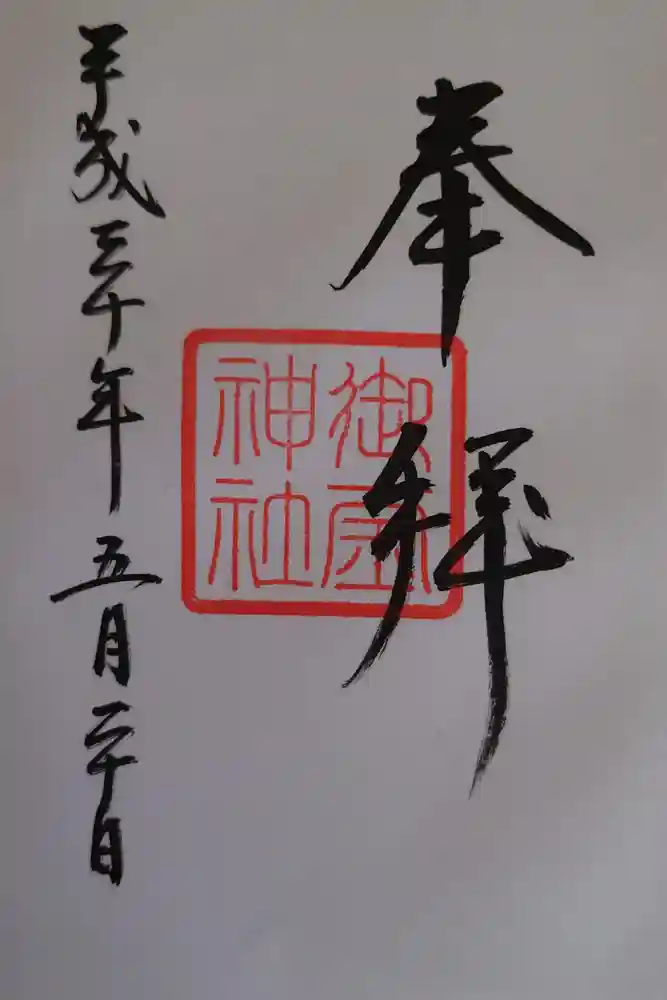 奉拝
御座
神社
平成三十年五月二十日